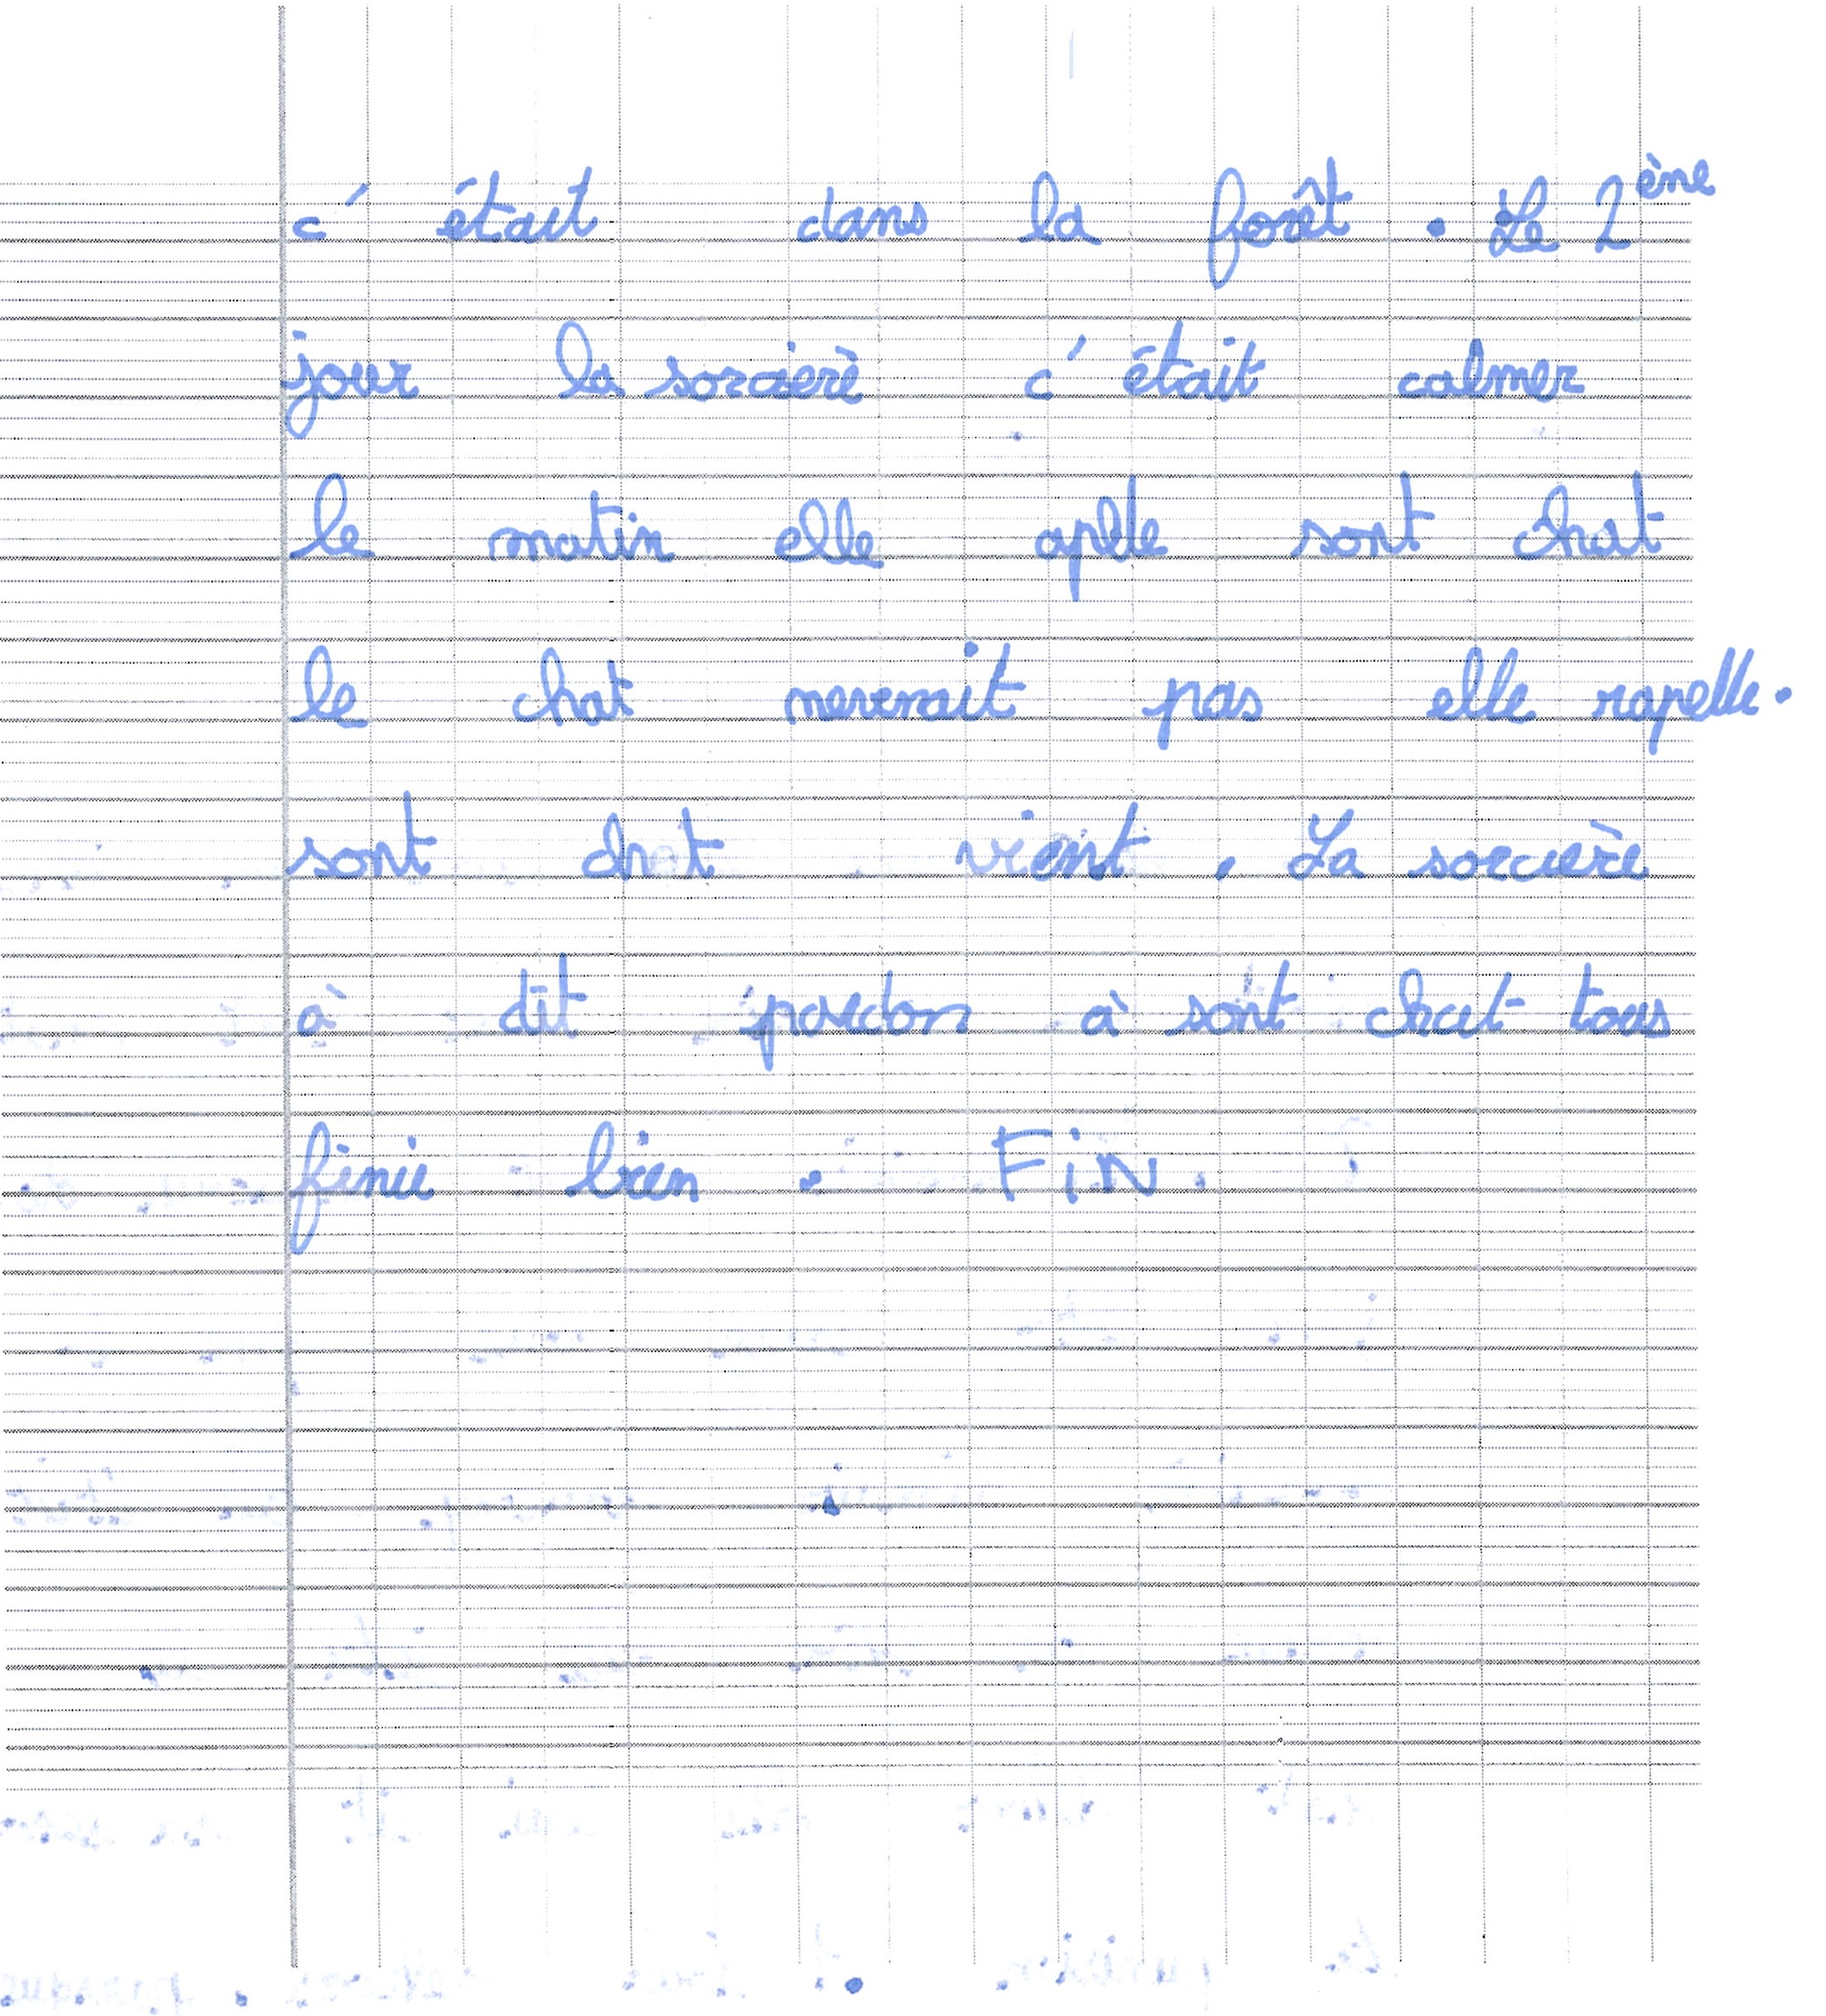 c'était dans la forêt . Le 2ène
jour la sorcierè c'était calmer
le matin elle aplle sont chat
le chat nevenait pas elle rapelle.
sont chat vient . La sorcière
à dit pardon à sont chat tous
finie bien . FiN.